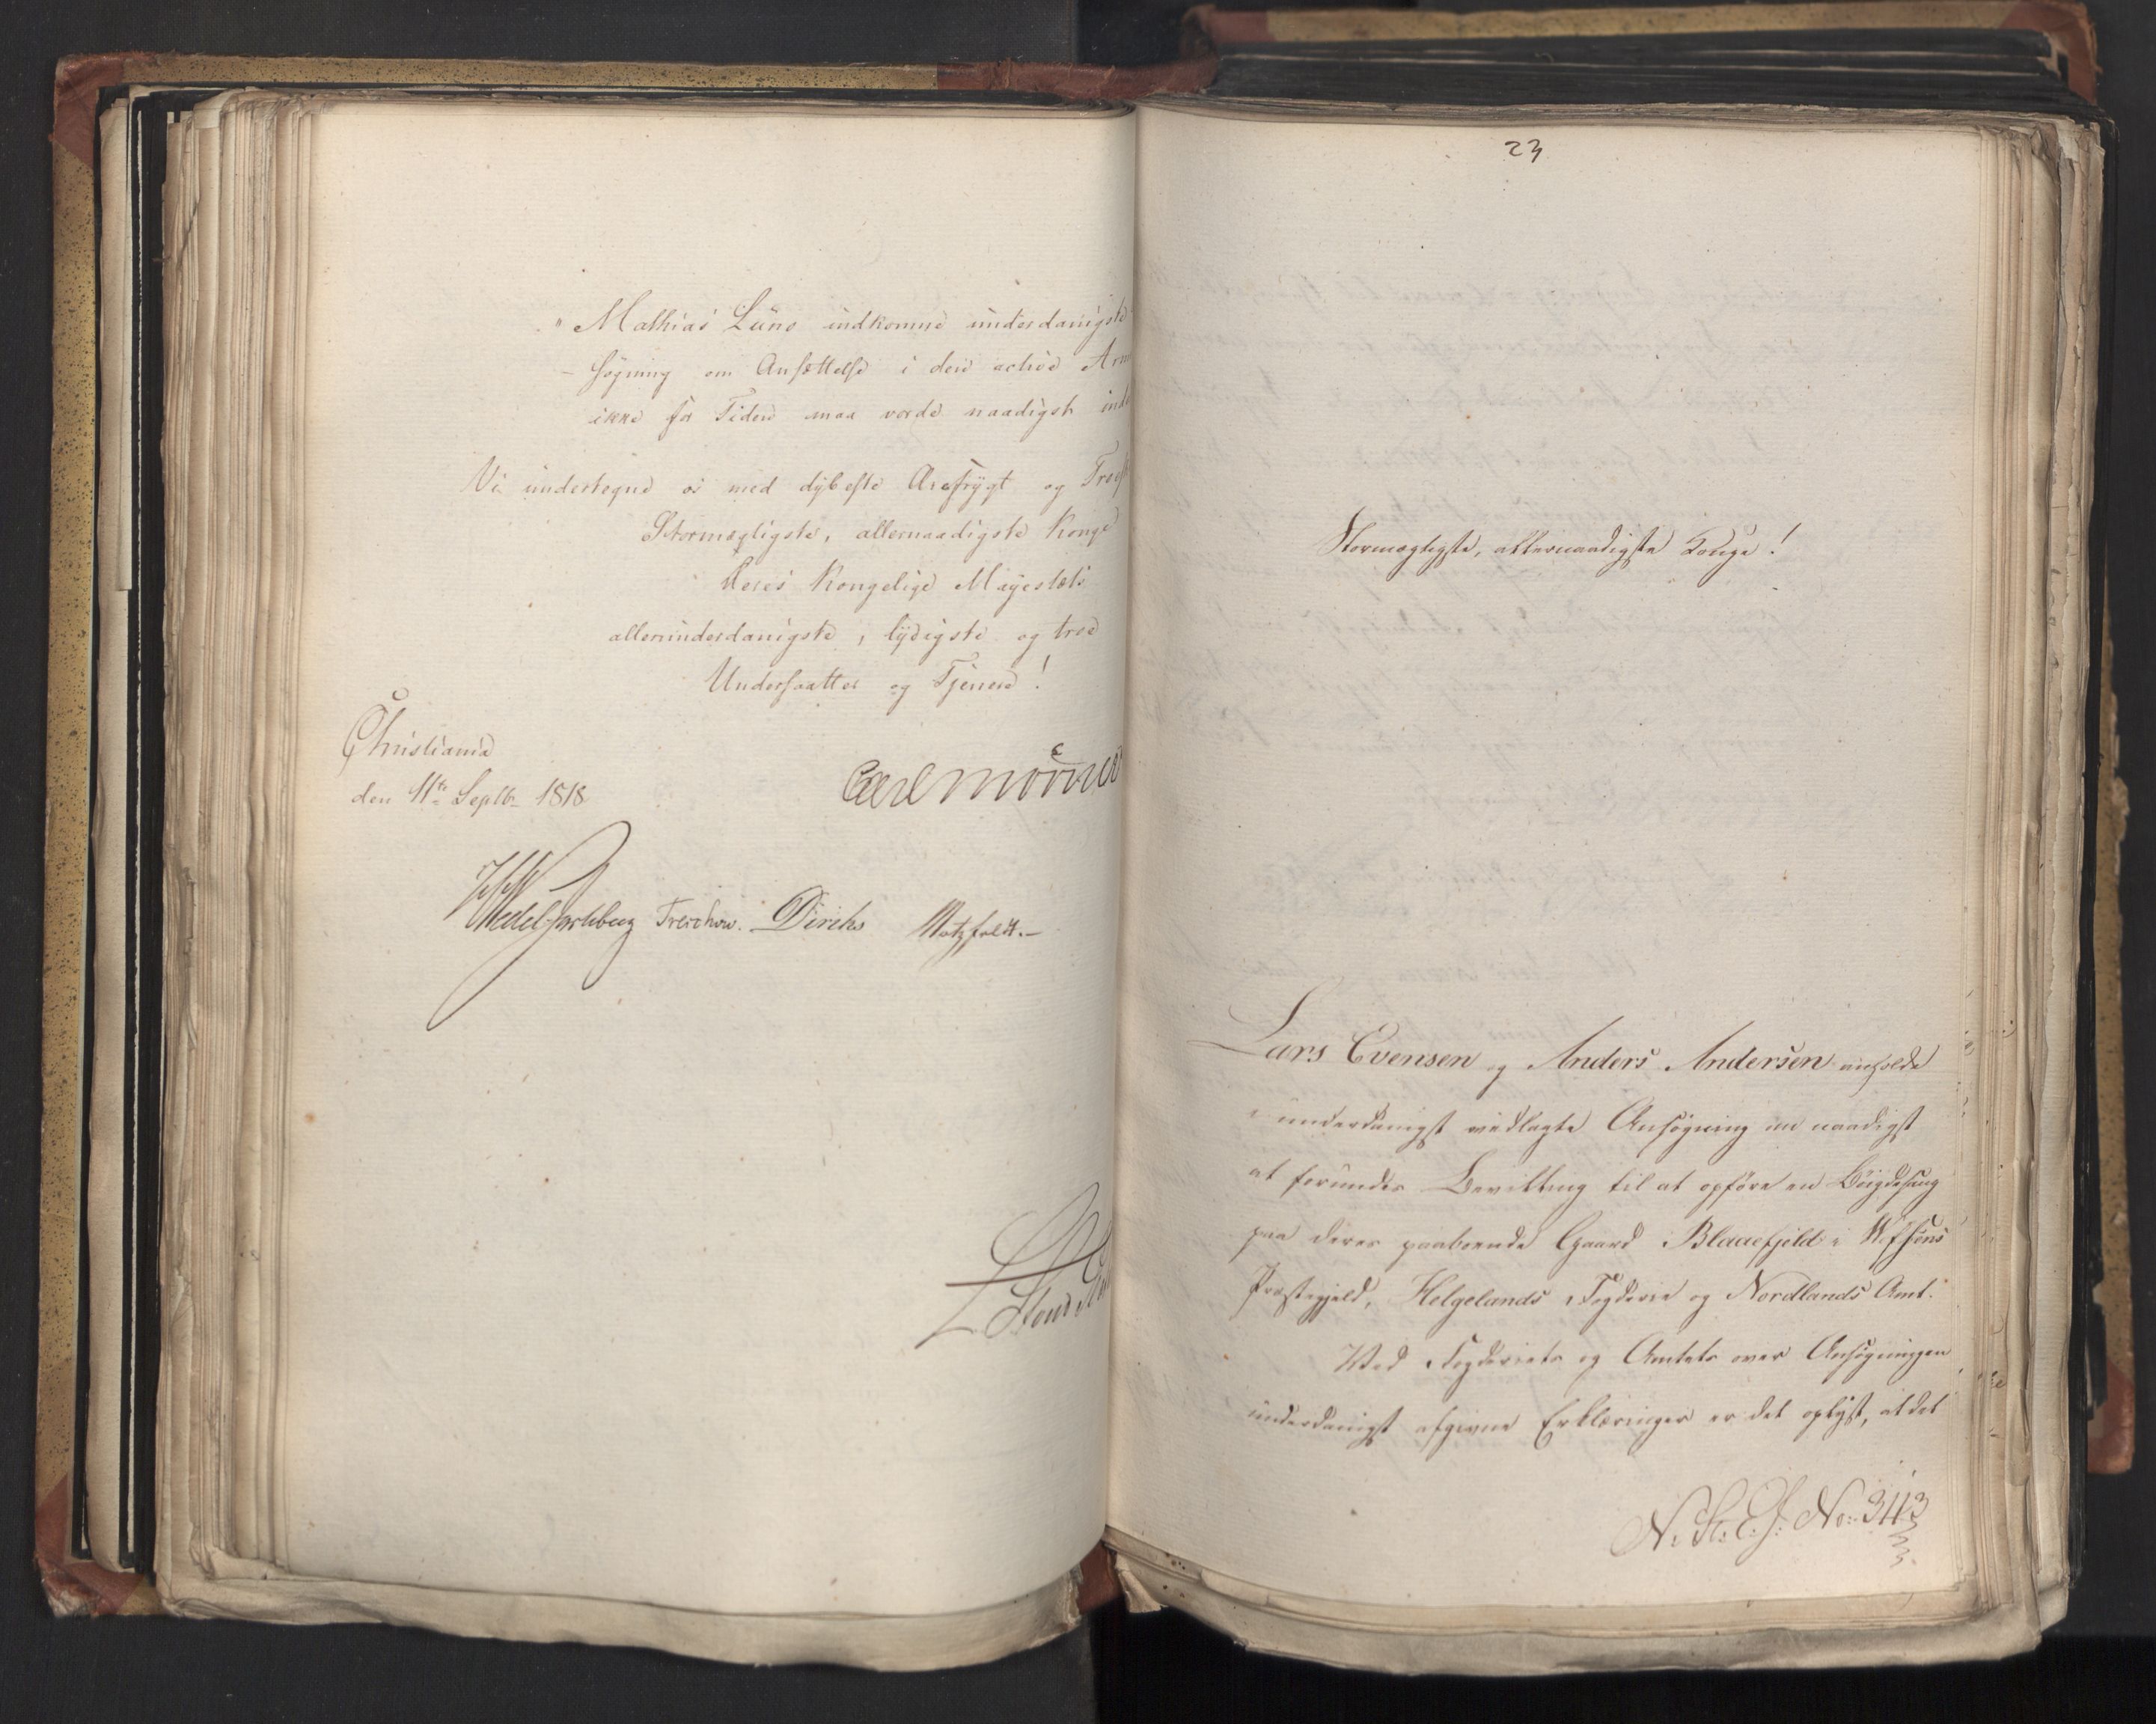 " Mathias Lüno indkomne underdanigste
- søgning om Ansættelse i den active Arm
ikke for Tiden maa vorde naadigst ind
Vi undertegne os med dybeste Ærefrygt og
Stormægtigste, allernaadigste Konge
Deres Kongelige Majestæts
allerunderdanigste, lydigste og troe
Undersaatter og Tjenere!
Christiania
den 11te Septbr 1818
Carl Mörner
Wedel Jarlsberg Treschow. Diriks Motzfeldt.-
23
Stormægtigste, allernaadigste Konge!
Lars Evensen og Anders Andersen anholde
i underdanigst vedlagte Ansøgning om naadigst
at forundes Bevilling til at opføre en Bøigdesaug
paa deres paaboende Gaard Blaaefjeld i Wefsens
Præstegjeld, Helgelands Fogderie og Nordlands Amt.
Ved Fogderiets og Amtets over Ansøgningen
underdanigst afgivne Erklæringer er det oplyst, at det
N. St. C. J: No: 343